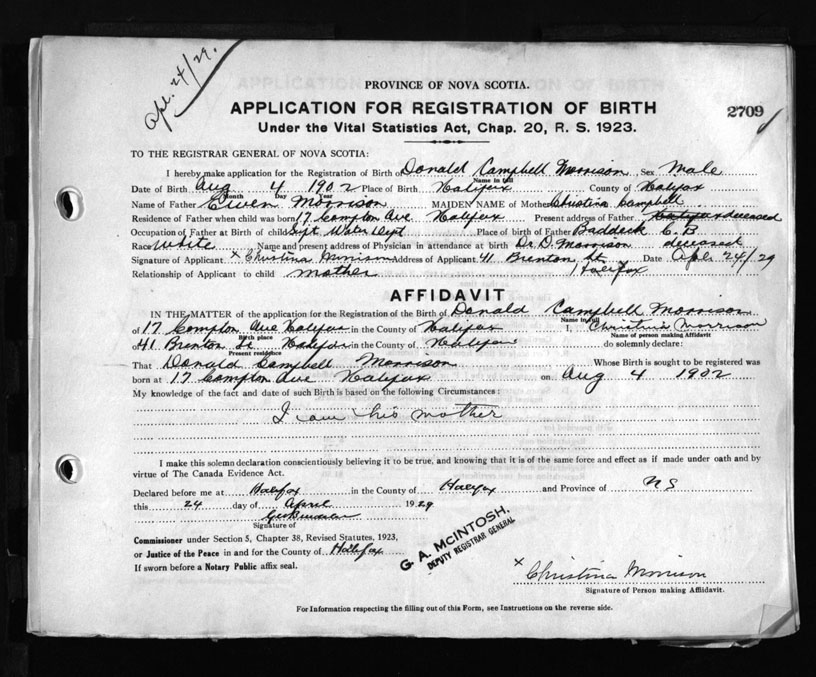 Apl. 24/29.
PROVINCE OF NOVA SCOTIA.
APPLICATION FOR REGISTRATION OF BIRTH
2709
Under the Vital Statistics Act, Chap. 20, R. S. 1923.
TO THE REGISTRAR GENERAL OF NOVA SCOTIA:
I hereby make application for the Registration of Birth of Donald Campbell Morrison Sex Male
Name in full
Date of Birth Aug 4 1902 Place of Birth Halifax County of Halifax
Month Day Year
Name of Father Ewen Morrison MAIDEN NAME of Mother Christina Campbell
Residence of Father when child was born 17 Compton Ave Halifax Present address of Father Halifax deceased
Occupation of Father at Birth of child Supt Water Dept Place of birth of Father Baddeck C. B
Race White Name and present address of Physician in attendance at birth Dr. D. Morrison deceased
Signature of Applicant x Christina Morrison Address of Applicant 41 Brenton St Date Apl 24/29
Relationship of Applicant to child mother Halifax
AFFIDAVIT
IN THE MATTER of the application for the Registration of the Birth of Donald Campbell Morrison
Name in full
of 17 Compton Ave Halifax in the County of Halifax I, Christina Morrison
Birth place Name of person making Affidavit
of 41 Brenton St Halifax in the County of Halifax do solemnly declare:
Present residence
That Donald Campbell Morrison Whose Birth is sought to be registered was
born at 17 Compton Ave Halifax on Aug 4 1902
My knowledge of the fact and date of such Birth is based on the following Circumstances:
I am his mother
I make this solemn declaration conscientiously believing it to be true, and knowing that it is of the same force and effect as if made under oath and by
virtue of The Canada Evidence Act.
Declared before me at Halifax in the County of Halifax and Province of NS
this 24 day of April 1929
Signature of
Commissioner under Section 5, Chapter 38, Revised Statutes, 1923,
or Justice of the Peace in and for the County of Halifax
If sworn before a Notary Public affix seal.
G. A. McINTOSH.
DEPUTY REGISTRAR GENERAL
x Christina Morrison
Signature of Person making Affidavit.
For Information respecting the filling out of this Form, see Instructions on the reverse side.